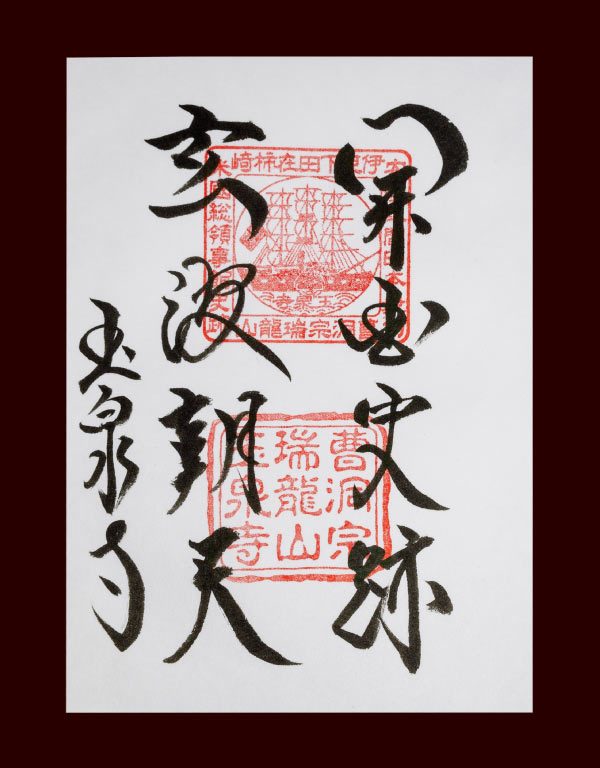 開国史跡
玄波朝天
玉泉寺
伊豆下田在柿崎
米國総領事館史跡
曹洞宗瑞龍山
曹洞宗
瑞龍山
玉泉寺